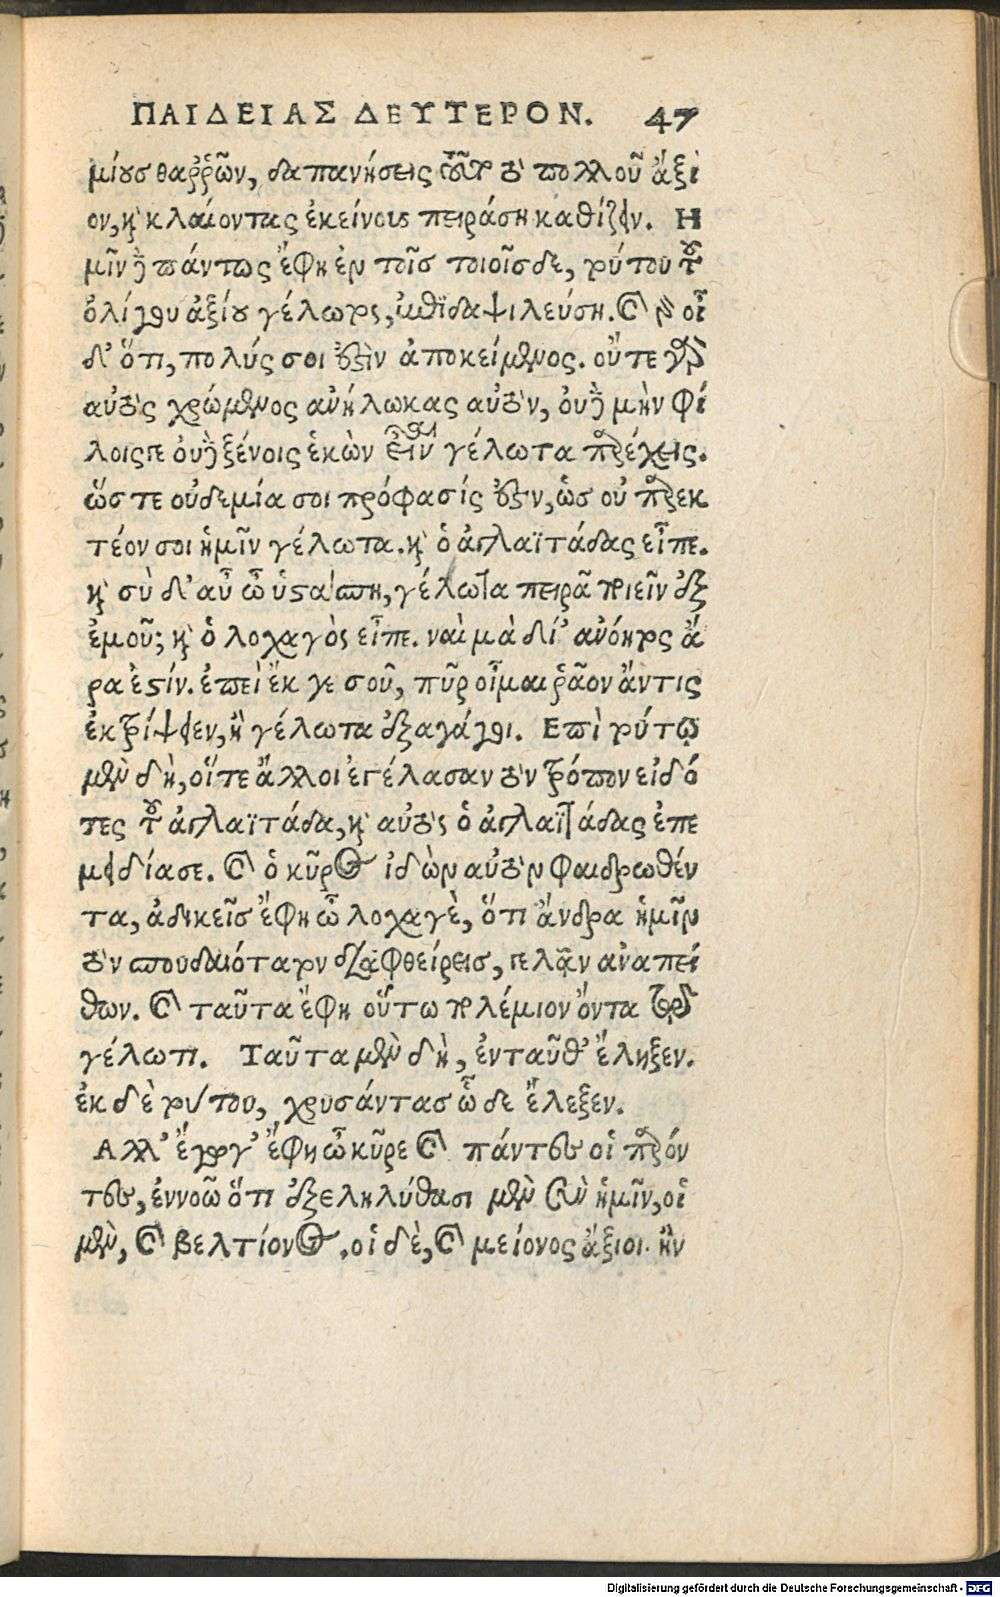 ΠΑΙΔΕΙΑΣ ΔΕΥΤΕΡΟΝ. 47
μίους θαῤῥῶν, δαπανήσεις τῦτο τὸ πολλοῦ ἄξι
ον, καὶ κλαίοντας ἐκείνους πειράσῃ καθίζειν. Η
μῖν δὲ πάντως ἔφη ἐν τοῖς τοιοῖσδε, τούτου τοῦ
ὀλίγου ἀξίου γέλωτος, ἐπιδαψιλεύσῃ. καὶ γὰρ οἶ
δ' ὅτι, πολύς σοι ἐστὶν ἀποκείμενος. οὔτε γὰρ
αὐτὸς χρώμενος ἀνήλωκας αὐτὸν, οὐδὲ μὴν φί
λοις οὐδὲ ξένοις ἑκὼν εἶναι γέλωτα παρέχεις.
ὥστε οὐδεμία σοι πρόφασίς ἐστιν, ὡς οὐ παρεκ
τέον σοι ἡμῖν γέλωτα. καὶ ὁ ἀγλαϊτάδας εἶπε.
καὶ σὺ δ' αὖ ὦ ὑστάσπη, γέλωτα πειρᾷ ποιεῖν ἐξ
ἐμοῦ; καὶ ὁ λοχαγὸς εἶπε. ναὶ μὰ δί' ἀνόητος ἄ
ρα ἐστίν. ἐπεὶ ἔκ γε σοῦ, πῦρ οἶμαι ῥᾷον ἄν τις
ἐκτρίψειεν, ἢ γέλωτα ἐξαγάγοι. Επὶ τούτῳ
μὲν δὴ, οἵ τε ἄλλοι ἐγέλασαν τὸν τρόπον εἰδό
τες τοῦ ἀγλαϊτάδα, καὶ αὐτὸς ὁ ἀγλαϊτάδας ἐπε
μειδίασε. καὶ ὁ κῦρος ἰδὼν αὐτὸν φαιδρωθέν
τα, ἀδικεῖς ἔφη ὦ λοχαγὲ, ὅτι ἄνδρα ἡμῖν
τὸν σπουδαιότατον διαφθείρεις, γελᾷν ἀναπεί
θων. καὶ ταῦτα ἔφη οὕτω πολέμιον ὄντα τῷ
γέλωτι. Ταῦτα μὲν δὴ, ἐνταῦθ' ἔληξεν.
ἐκ δὲ τούτου, χρυσάντας ὧδε ἔλεξεν.
Αλλ' ἔγωγ' ἔφη ὦ κῦρε καὶ πάντες οἱ παρόν
τες, ἐννοῶ ὅτι ἐξεληλύθασι μὲν σὺν ἡμῖν, οἱ
μὲν, καὶ βελτίονος, οἱ δὲ, καὶ μείονος ἄξιοι. ἢν